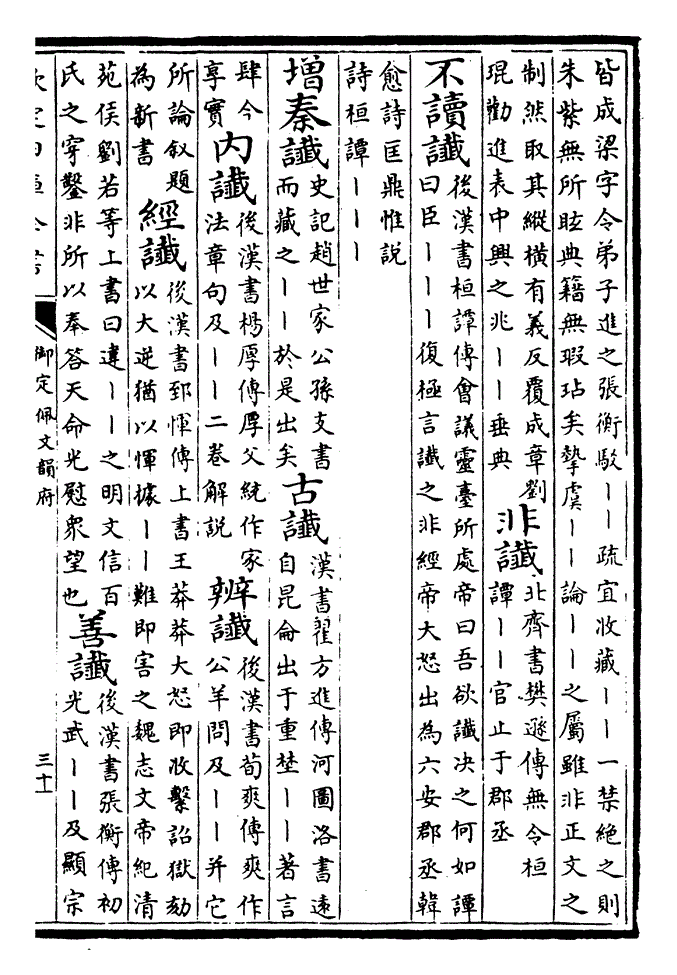 皆成梁字令弟子進之張衡駮丨丨疏宜收藏丨丨一禁絶之則
朱紫無所眩典籍無瑕玷矣摯虞丨丨論丨丨之屬雖非正文之
制然取其縱橫有義反覆成章劉
琨勸進表中興之兆丨丨垂典
非讖
北齊書樊遜傳無令桓
譚丨丨官止于郡丞
不讀讖
後漢書桓譚傳會議靈臺所處帝曰吾欲讖決之何如譚
曰臣丨丨丨復極言讖之非經帝大怒出為六安郡丞韓
愈詩匡鼎惟説
詩桓譚丨丨丨
增秦讖
史記趙世家公孫支書
而藏之丨丨於是出矣
古讖
漢書翟方進傳河圖洛書遠
自昆侖出于重埜丨丨著言
肆今
享實
内讖
後漢書楊厚傳厚父統作家
法章句及丨丨二卷解説
辨讖
後漢書荀爽傳爽作
公羊問及丨丨并它
所論叙題
為新書
經讖
後漢書郅惲傳上書王莽莽大怒即收繫詔獄劾
以大逆猶以惲據丨丨難即害之魏志文帝紀清
苑侯劉若等上書曰違丨丨之明文信百
氏之穿鑿非所以奉答天命光慰衆望也
善讖
後漢書張衡傳初
光武丨丨及顯宗
欽定四庫全書
御定佩文韻府
三十